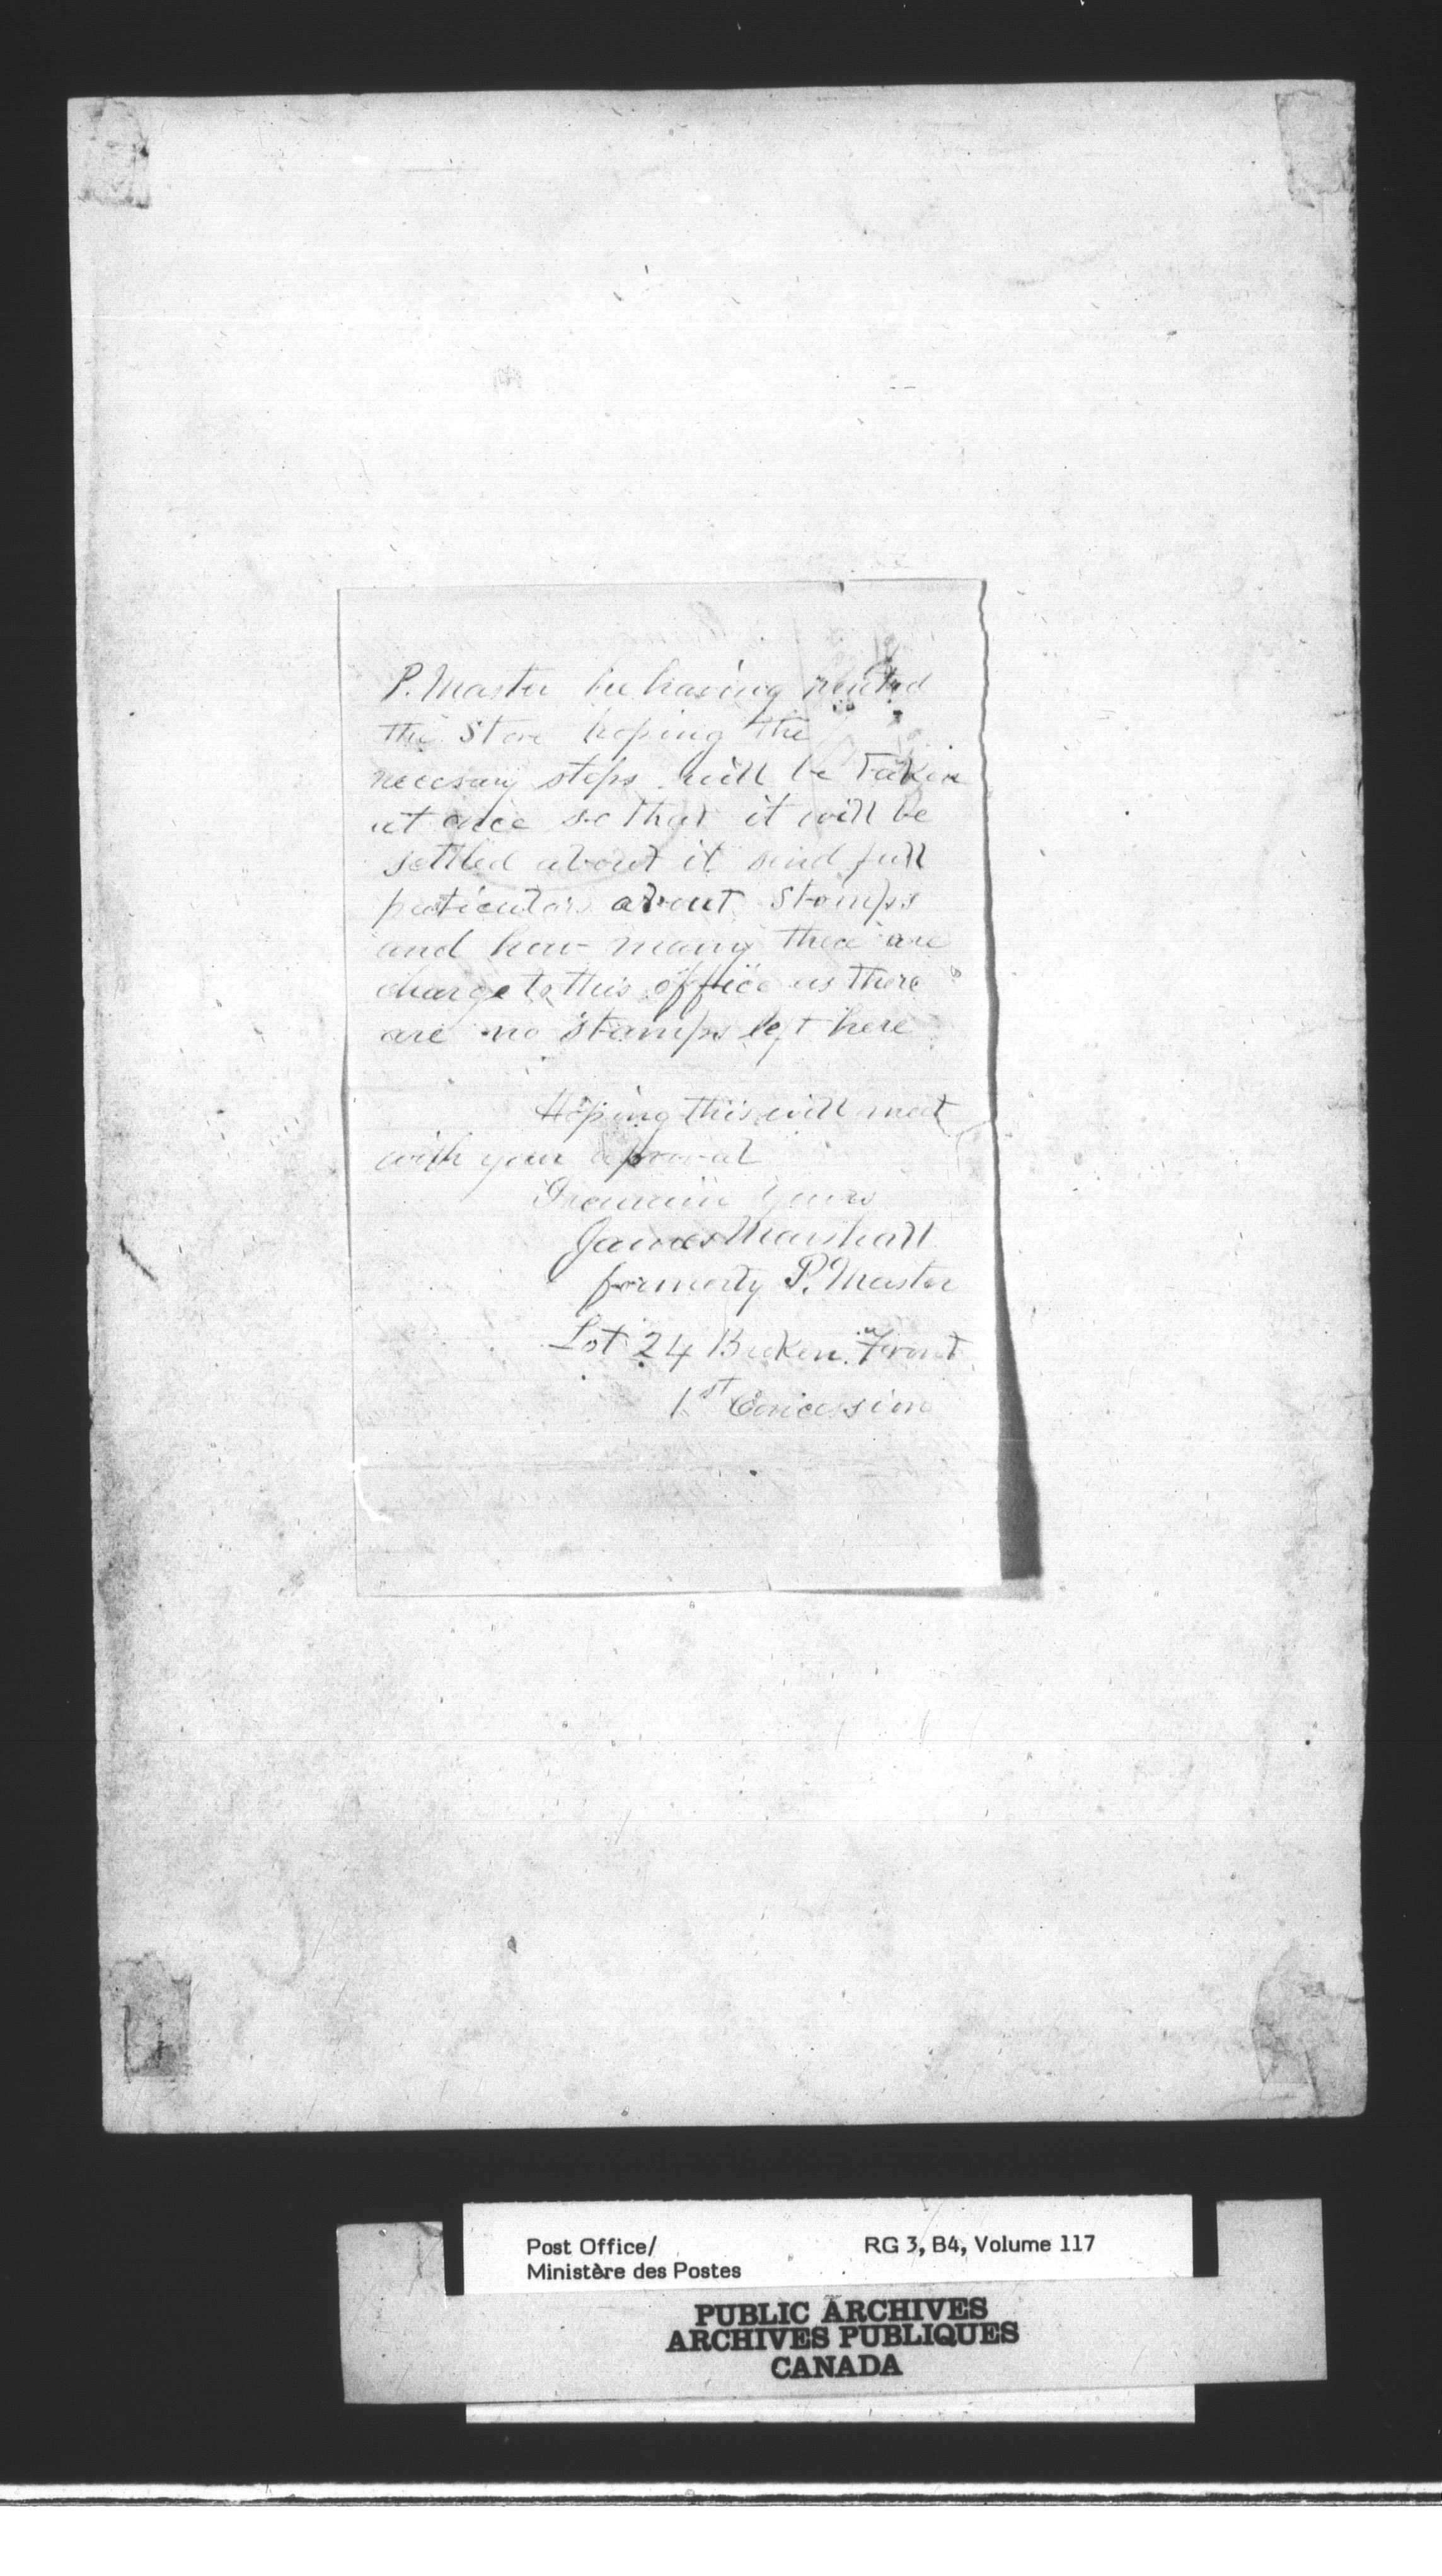 P. Master he having rented
the Store hoping the
necesary steps will be Taken
at once so that it will be
settled about it send full
particulars about Stamps
and how many there are
charge to this office as there
are no Stamps left here
Hoping this will meet
with your aproval
I remain yours
James Marshall
formerly P. Master
Lot 24 Broken Front
1st Concession
Post Office/ RG 3, B4, Volume 117
Ministère des Postes
PUBLIC ARCHIVES
ARCHIVES PUBLIQUES
CANADA